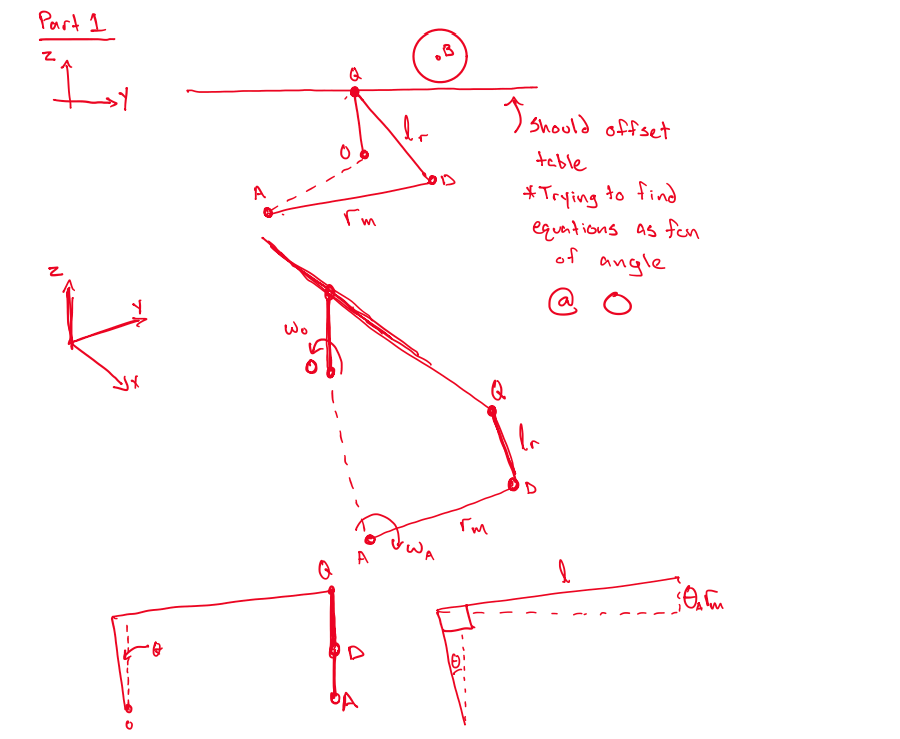 Part 1
Z
Y
Q
.B
O
lr
D
A
rm
should offset
table
*Trying to find
equations as fcn
of angle
@ O
Z
Y
X
ωo
O
Q
lr
D
rm
A
ωA
Q
θ
D
A
o
l
θA rm
θ